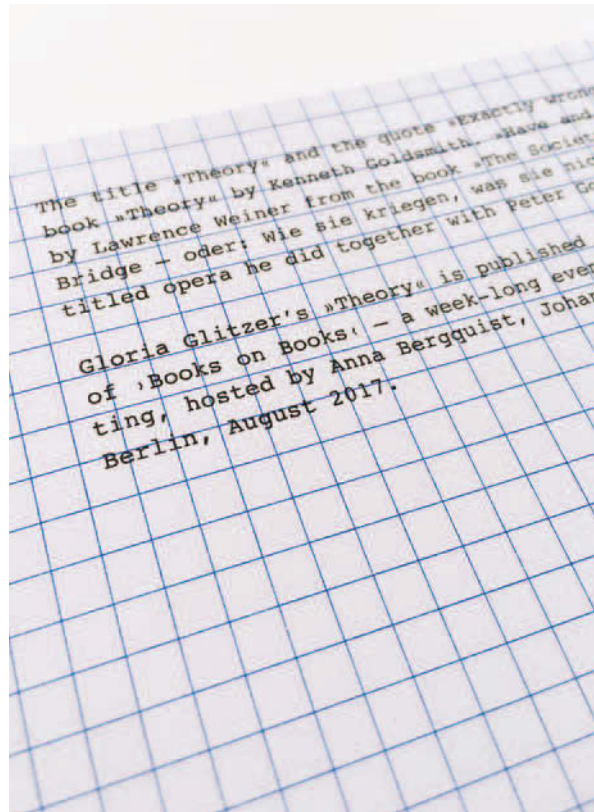 The title »Theory« and the quote »Exactly wrong
book »Theory« by Kenneth Goldsmith. »Have and
by Lawrence Weiner from the book »The Societ
Bridge — oder: Wie sie kriegen, was sie nic
titled opera he did together with Peter Go
Gloria Glitzer's »Theory« is published
of ›Books on Books‹ — a week-long even
ting, hosted by Anna Bergquist, Johan
Berlin, August 2017.